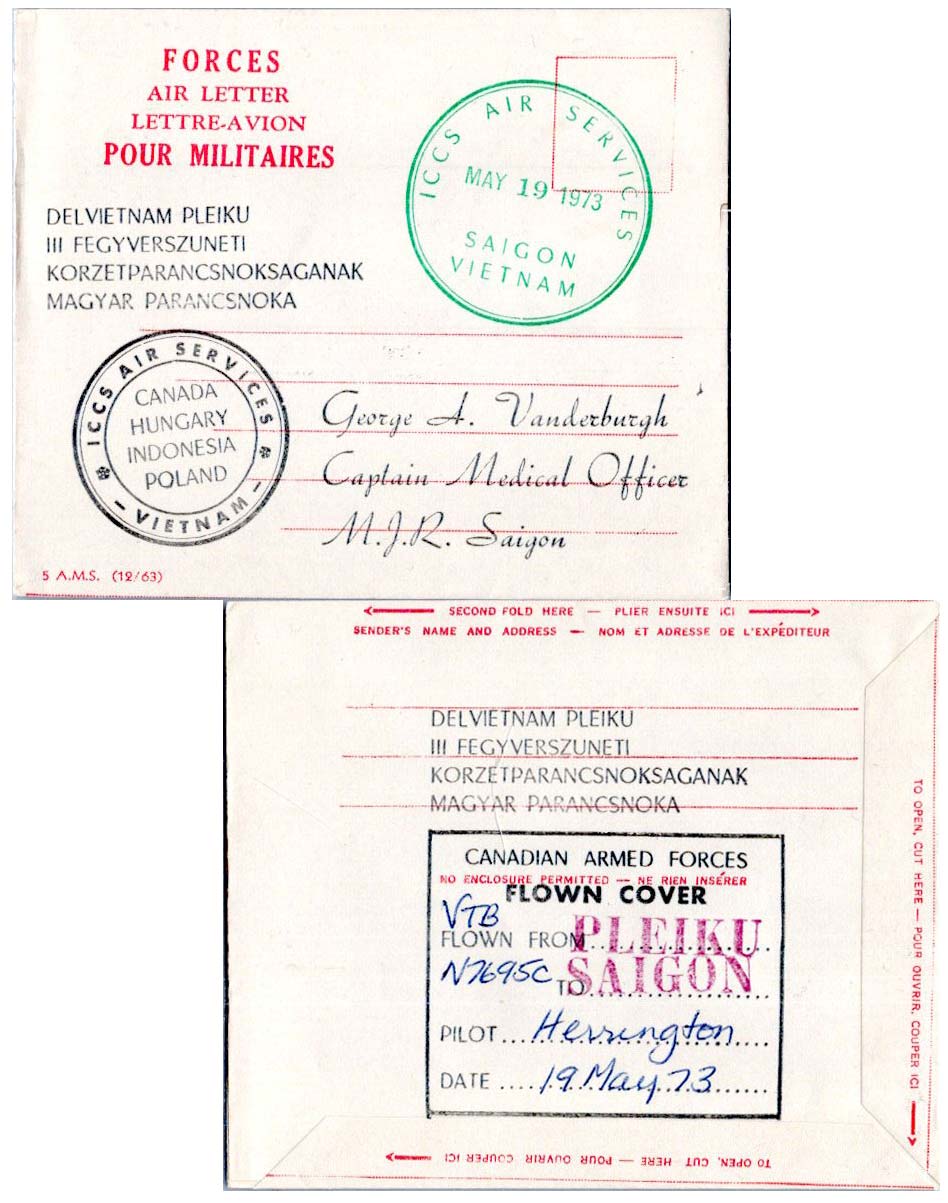 FORCES
AIR LETTER
LETTRE-AVION
POUR MILITAIRES
ICCS AIR SERVICES
MAY 19 1973
SAIGON
VIETNAM
DELVIETNAM PLEIKU
III FEGYVERSZUNETI
KORZETPARANCSNOKSAGANAK
MAGYAR PARANCSNOKA
ICCS AIR SERVICES
CANADA
HUNGARY
INDONESIA
POLAND
VIETNAM
George A. Vanderburgh
Captain Medical Officer
M.J.R. Saigon
5 A.M.S. (12/63)
SECOND FOLD HERE — PLIER ENSUITE ICI
SENDER'S NAME AND ADDRESS — NOM ET ADRESSE DE L'EXPÉDITEUR
DELVIETNAM PLEIKU
III FEGYVERSZUNETI
KORZETPARANCSNOKSAGANAK
MAGYAR PARANCSNOKA
CANADIAN ARMED FORCES
NO ENCLOSURE PERMITTED — NE RIEN INSÉRER
FLOWN COVER
VTB
FLOWN FROM PLEIKU
N7695C TO SAIGON
PILOT....Herrington
DATE ....19 May 73
TO OPEN, CUT HERE — POUR OUVRIR, COUPER ICI
TO OPEN, CUT HERE — POUR OUVRIR COUPER ICI